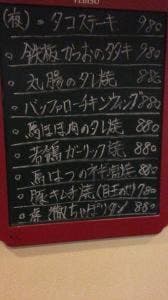 (夜)・タコステーキ 980
・鉄板かつおのタタキ 980
・丸腸のタレ焼 980
・バッファローチキンウィング 880
・馬ほほ肉のタレ焼 880
・若鶏ガーリック焼 880
・馬はつのネギ油焼 880
・豚キムチ焼(目玉のせ) 980